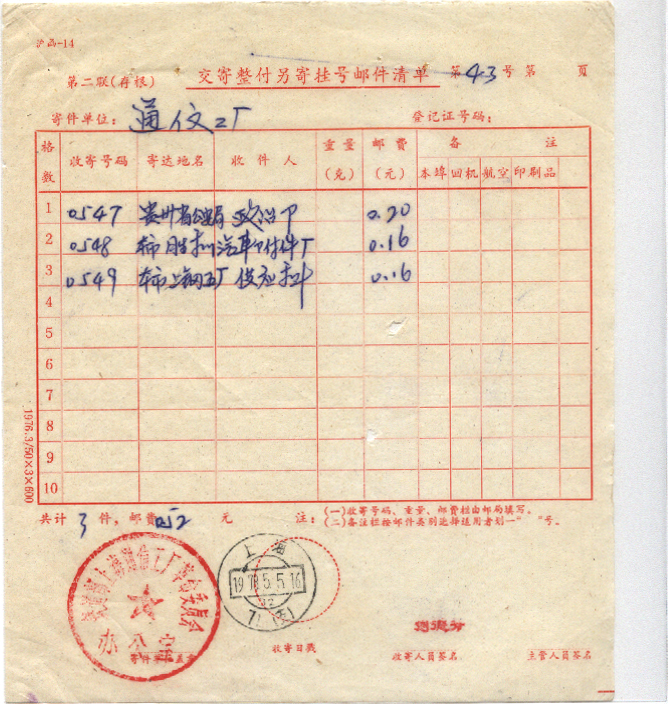 沪函-14
第二联(存根) 交寄整付另寄挂号邮件清单 第43号第 页
寄件单位: 登记证号码:
格数 收寄号码 寄达地名 收件人 重量(克) 邮费(元) 备注
本埠 回机 航空 印刷品
1 0547 贵州省 政治 0.20
2 0548 本市 汽车 付件厂 0.16
3 0549 本市上钢五厂 供应科 0.16
4
5
6
7
8
9
10
1976.3/50×3×600
共计 3 件, 邮费 0.52 元 注:
(一)收寄号码、重量、邮费栏由邮局填写。
(二)备注栏按邮件类别选择适用者划一"  "号。
上海通信工厂革命委员会
办公室
上海
1978.5.5.16
收寄日戳
收寄人员签名
主管人员签名